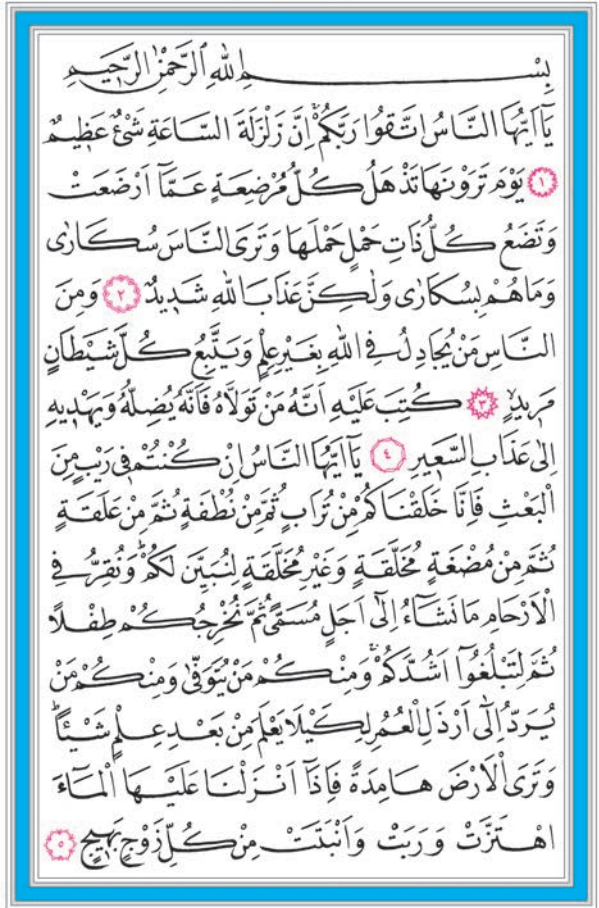 بِسْمِ اللهِ الرَّحْمٰنِ الرَّحِيمِ
يَٓا اَيُّهَا النَّاسُ اتَّقُوا رَبَّكُمْۚ اِنَّ زَلْزَلَةَ السَّاعَةِ شَيْءٌ عَظِيمٌ
﴿١﴾ يَوْمَ تَرَوْنَهَا تَذْهَلُ كُلُّ مُرْضِعَةٍ عَمَّٓا اَرْضَعَتْ
وَتَضَعُ كُلُّ ذَاتِ حَمْلٍ حَمْلَهَا وَتَرَى النَّاسَ سُكَارٰى
وَمَا هُمْ بِسُكَارٰى وَلٰكِنَّ عَذَابَ اللهِ شَدِيدٌ ﴿٢﴾ وَمِنَ
النَّاسِ مَنْ يُجَادِلُ فِي اللهِ بِغَيْرِ عِلْمٍ وَيَتَّبِعُ كُلَّ شَيْطَانٍ
مَرِيدٍۙ ﴿٣﴾ كُتِبَ عَلَيْهِ اَنَّهُ مَنْ تَوَلَّاهُ فَاَنَّهُ يُضِلُّهُ وَيَهْدِيهِ
اِلٰى عَذَابِ السَّعِيرِ ﴿٤﴾ يَٓا اَيُّهَا النَّاسُ اِنْ كُنْتُمْ فِي رَيْبٍ مِنَ
الْبَعْثِ فَاِنَّا خَلَقْنَاكُمْ مِنْ تُرَابٍ ثُمَّ مِنْ نُطْفَةٍ ثُمَّ مِنْ عَلَقَةٍ
ثُمَّ مِنْ مُضْغَةٍ مُخَلَّقَةٍ وَغَيْرِ مُخَلَّقَةٍ لِنُبَيِّنَ لَكُمْۜ وَنُقِرُّ فِي
الْاَرْحَامِ مَا نَشَٓاءُ اِلٰٓى اَجَلٍ مُسَمًّى ثُمَّ نُخْرِجُكُمْ طِفْلًا
ثُمَّ لِتَبْلُغُٓوا اَشُدَّكُمْۚ وَمِنْكُمْ مَنْ يُتَوَفّٰى وَمِنْكُمْ مَنْ
يُرَدُّ اِلٰٓى اَرْذَلِ الْعُمُرِ لِكَيْلَا يَعْلَمَ مِنْ بَعْدِ عِلْمٍ شَيْـًٔاۜ
وَتَرَى الْاَرْضَ هَامِدَةً فَاِذَٓا اَنْزَلْنَا عَلَيْهَا الْمَٓاءَ
اهْتَزَّتْ وَرَبَتْ وَاَنْبَتَتْ مِنْ كُلِّ زَوْجٍ بَهِيجٍ ﴿٥﴾